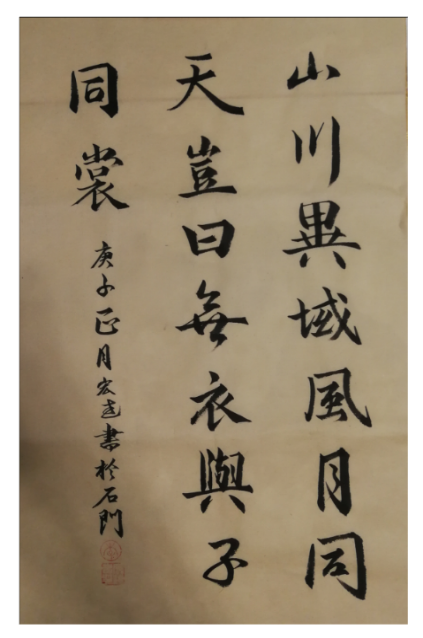 山川異域風月同
天豈曰無衣與子
同裳
庚子正月宏志書於石門